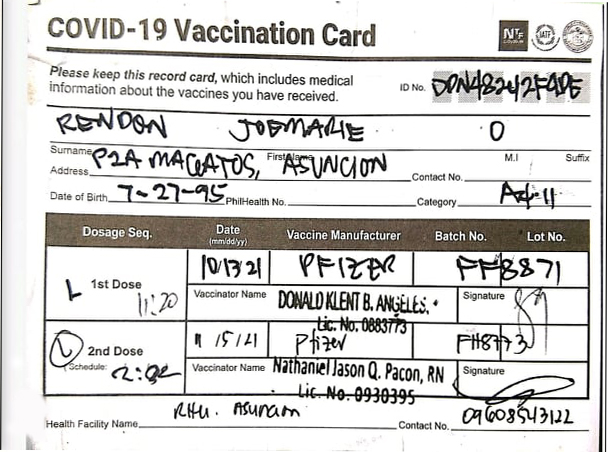 COVID-19 Vaccination Card
NTF
IATF
Please keep this record card, which includes medical
information about the vaccines you have received.
ID No.
RENDON JOEMARIE O
Surname First Name M.I Suffix
Address P2A MAGATOS, ASUNCION Contact No.
Date of Birth 7-27-95 PhilHealth No. Category
Dosage Seq. Date (mm/dd/yy) Vaccine Manufacturer Batch No. Lot No.
1st Dose 10/13/21 PFIZER FF8871
11:20 Vaccinator Name DONALD KLENT B. ANGELES. Signature
Lic. No. 0883773
2nd Dose 11/15/21 Pfizer FH8773
Schedule: Vaccinator Name Nathaniel Jason Q. Pacon, RN Signature
Lic. No. 0930395
Health Facility Name RHU. Contact No. 09608543122